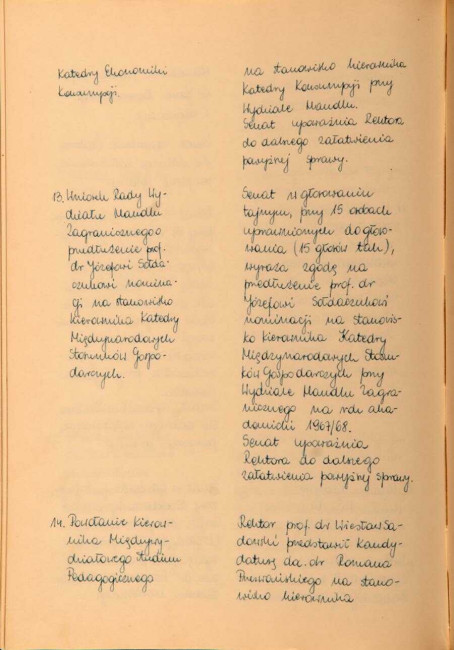 Katedry Ekonomiki
Konsumpcji.
na stanowisko kierownika
Katedry Konsumpcji przy
Wydziale Handlu.
Senat upoważnia Rektora
do dalnego załatwienia
powyżnej sprawy.
13. Wniosek Rady Wy-
działu Handlu
Zagranicznego o
przedłużenie prof.
dr Józefowi Sołda-
czukowi nomina-
cji na stanowisko
Kierownika Katedry
Międzynarodowych
Stosunków Gospo-
darczych.
Senat w głosowaniu
tajnym, przy 15 osobach
uprawnionych do głoso-
wania (15 głosów tak),
wyraża zgodę na
przedłużenie prof. dr
Józefowi Sołdaczukowi
nominacji na stanowis-
ko kierownika Katedry
Międzynarodowych Stosun-
ków Gospodarczych przy
Wydziale Handlu Zagra-
nicznego na rok aka-
demicki 1967/68.
Senat upoważnia
Rektora do dalnego
załatwienia powyżnej sprawy.
14. Powołanie Kierow-
nika Międzywy-
działowego Studium
Pedagogicznego
Rektor prof. dr Wiesław Sa-
dowski przedstawił kandy-
daturę dr Romana
na stano-
wisko kierownika